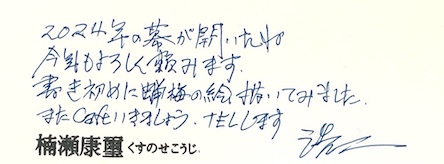 2024年の幕が開いたね
今年もよろしく頼みます.
書き初めに蝋梅の絵描いてみました.
またCafeいきましょう. TELします
楠瀬康璽 くすのせこうじ